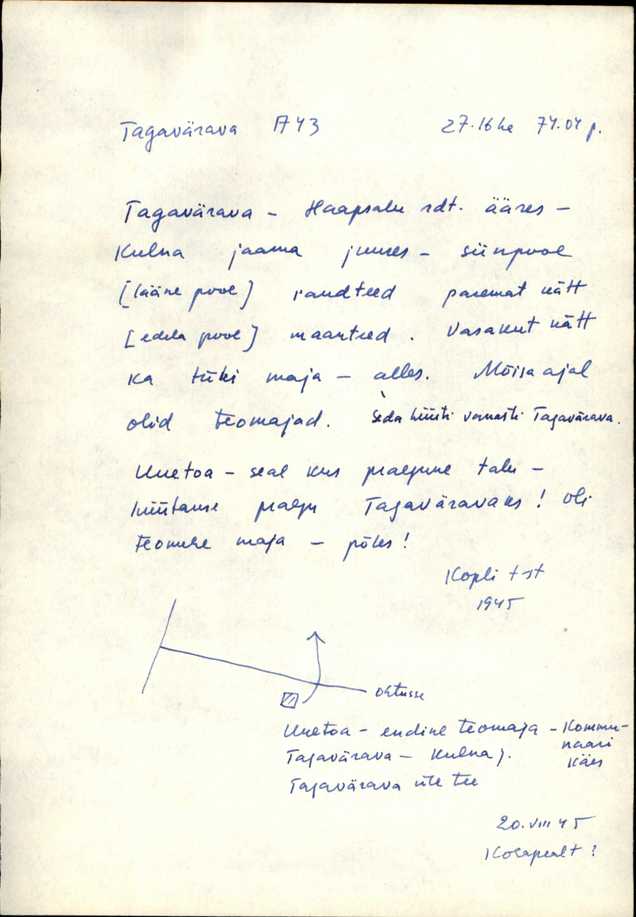 Tagavärava A43 27.16 he 74.04 p.
Tagavärava – Haapsalu rdt. ääres –
Kulna jaama juures – siinpool
[lääne pool] raudteed paremat kätt
[edela pool] maanteed. Vasakut kätt
ka tüki maja – alles. Mõisa ajal
olid teomajad. Seda hüüti vanasti Tagavärava.
Uuetoa – seal kus praegune talu –
hüütakse praegu Tagaväravaks! Oli
teomehe maja – põles!
Kopli t-st
1945
ohtusse
Uuetoa – endine teomaja – Kommu-
naari
käes
Tagavärava – Kulna j.
Tagavärava üle tee
20.VIII 45